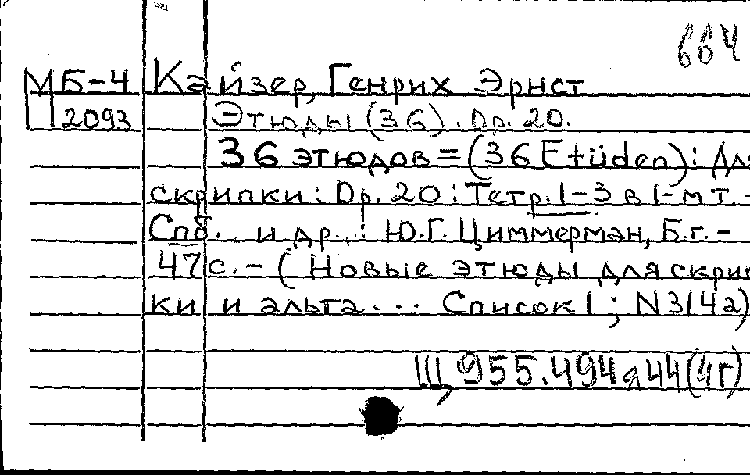 664
МБ-4 Кайзер, Генрих Эрнст
П 2093 Этюды (36). Op. 20.
36 этюдов = (36 Etüden): Для
скрипки: Op. 20: Тетр. 1-3 в 1-м т. -
Спб. и др.: Ю.Г. Циммерман, Б.г. -
47 с. - (Новые этюды для скрип
ки и альта... Список 1; N 314a)
Ш, 955.494а44(4г)